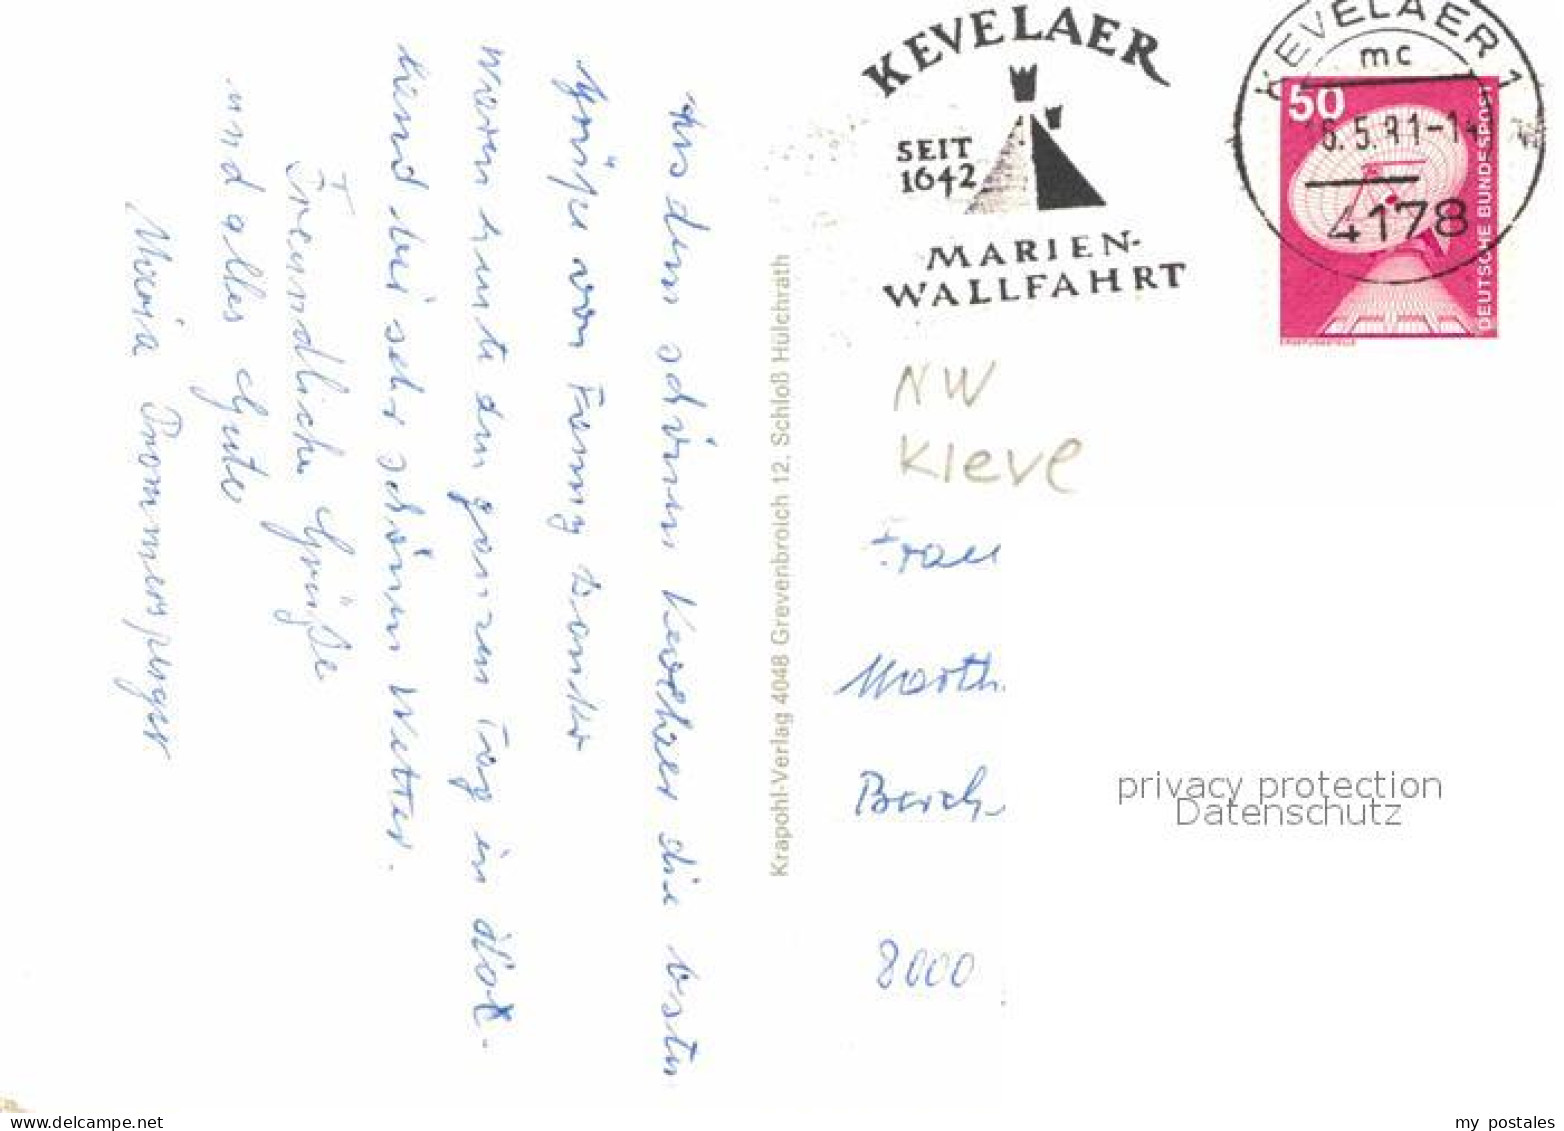 KEVELAER
SEIT
1642
MARIEN-
WALLFAHRT
KEVELAER 1
mc
6.5.81-14
4178
50
DEUTSCHE BUNDESPOST
ERDEFUNKSTELLE
NW
Kleve
Frau
Marth
8000
Aus dem schönen Kevelaer die besten
Grüße von Fanny
waren heute den ganzen Tag in
land bei sehr schönem Wetter.
Freundliche Grüße
und alles Gute
Maria Prommersperger
Krapohl-Verlag 4048 Grevenbroich 12, Schloß Hülchrath
privacy protection
Datenschutz
delcampe.net
my_postales